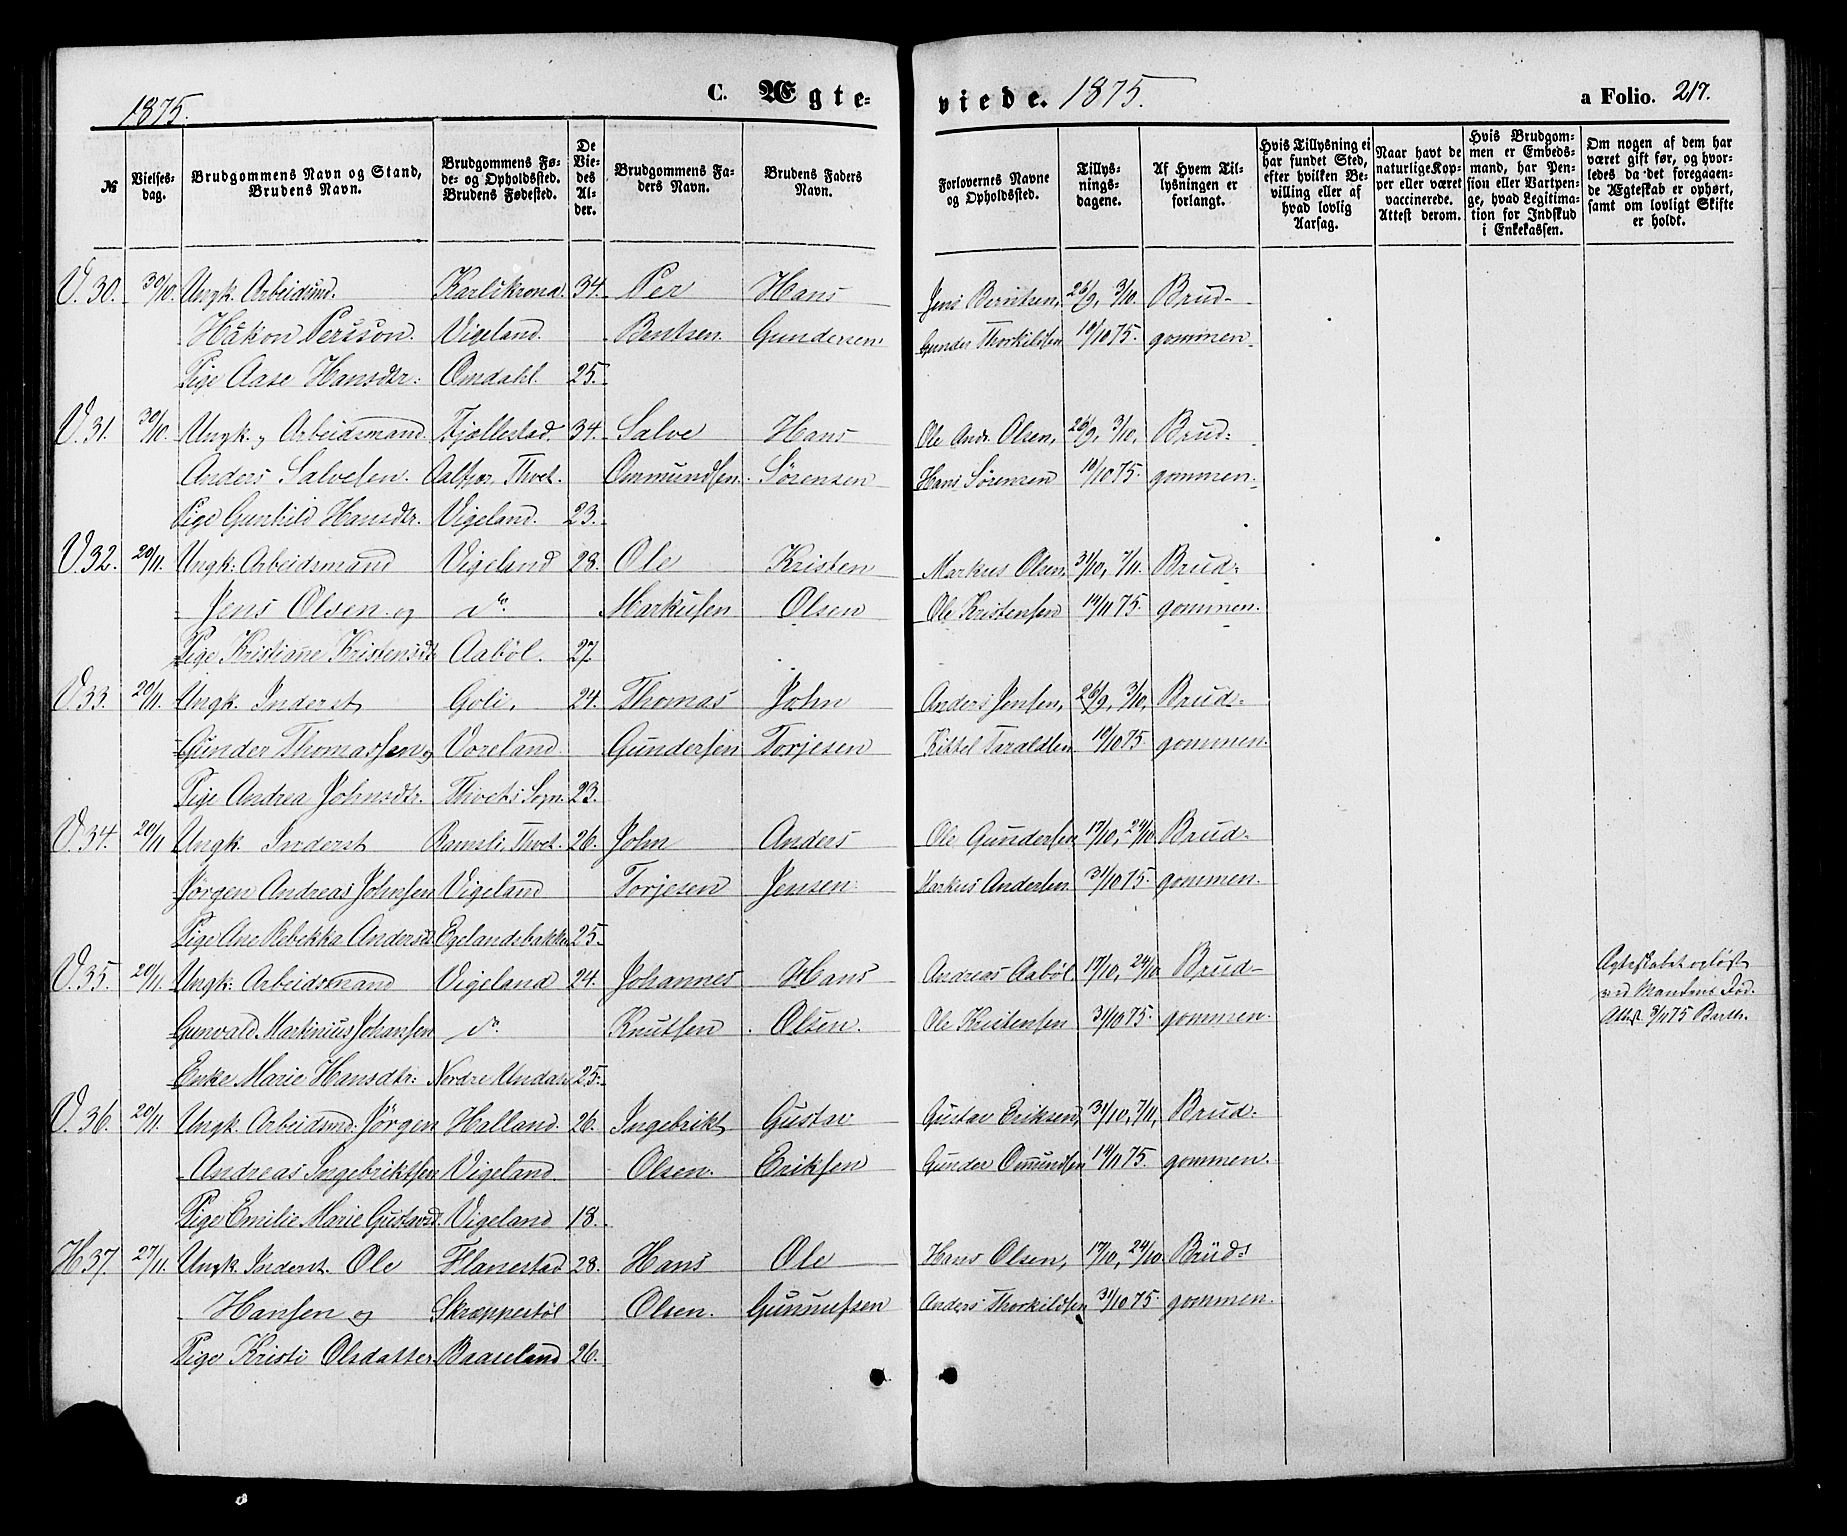 1875.
C. Ægte-
viede. 1875.
a Folio. 217.
№
Vielses-
dag.
Brudgommens Navn og Stand,
Brudens Navn.
Brudgommens Fø-
de- og Opholdssted.
Brudens Fødested.
De
Vie-
des
Al-
der.
Brudgommens Fa-
ders Navn.
Brudens Faders
Navn.
Forlovernes Navne
og Opholdssted.
Tillys-
nings-
dagene.
Af Hvem Til-
lysningen er
forlangt.
Hvis Tillysning ei
har fundet Sted,
efter hvilken Be-
villing eller af
hvad lovlig
Aarsag.
Naar havt de
naturlige Kop-
per eller været
vaccinerede.
Attest derom.
Hvis Brudgom-
men er Embeds-
mand, har Pen-
sion eller Vartpen-
ge, hvad Legitima-
tion for Indskud
i Enkekassen.
Om nogen af dem har
været gift før, og hvor-
ledes da det foregaaen-
de Ægteskab er ophørt,
samt om lovligt Skifte
er holdt.
V. 30. 30/10. Ungk. Arbeidsmd. Karlskrona. 34. Per Hans Jens Berntsen, 26/9, 3/10. Brud-
Håkon Persson. Vigeland. Bentsen. Gundersen. Gunder Thorkildsen 10/10 75. gommen.
Pige Aase Hansdtr. Omdahl. 25.
V. 31. 30/10. Ungk. Arbeidsmand. Fjellestad. 34. Salve Hans Ole Andr. Olsen, 26/9, 3/10, Brud-
Anders Salvesen. Thvet. Ommundsen. Sørensen Hans Sørensen 10/10 75. gommen.
Pige Gunhild Hansdtr. Vigeland. 23.
V. 32. 20/11. Ungk. Arbeidsmand Vigeland 28. Ole Kristen Markus Olsen, 31/10, 7/11. Brud-
Jens Olsen og do. Markusen Olsen Ole Kristensen 14/11 75. gommen.
Pige Kristiane Kristensdt. Aabøl. 27.
V. 33. 20/11. Ungk. Inderst Goli, 24. Thomas John Anders Jensen, 26/9, 3/10, Brud-
Gunder Thomassen og Voreland. Gundersen Torjesen Kittel Taraldsen 10/10 75. gommen.
Pige Andrea Johnsdtr. Thvets Sogn. 23.
V. 34. 20/11 Ungk. Inderst Ramsli, Thvet. 26. John Anders Ole Gundersen 17/10, 24/10. Brud-
Jørgen Andreas Johnsen Vigeland Torjesen Jensen. Markus Andersen 31/10 75. gommen.
Pige Ane Rebekka Andersdt. Egelandsbakken 25.
V. 35. 20/11. Ungk. Arbeidsmand Vigeland 24. Johannes Hans Andreas Aabøl 17/10, 24/10 Brud- Ægteskabet opløst
Gunvald Martinius Johansen do. Knutsen Olsen. Ole Kristensen 31/10 75. gommen. ved Mandens Død.
Attest 3/11 75 Barth.
Enke Marie Hansdtr: Nordre Undal 25.
V. 36. 20/11. Ungk. Arbeidsmd. Jørgen Halland. 26. Ingebrikt Gustav Gustav Eriksen, 31/10, 7/11, Brud-
Andreas Ingebriktsen Vigeland. Olsen. Eriksen Gunder Omundsen 14/11 75. gommen.
Pige Emilie Marie Gustavsd. Vigeland 18.
H. 37. 27/11. Ungk. Inderst. Ole Flanestad 28. Hans Ole Hans Olsen, 17/10, 24/10 Brud-
Hansen og Skræppestøl Olsen. Gunnufsen Anders Thorkildsen 31/10 75. gommen.
Pige Kristi Olsdatter Baaseland 26.